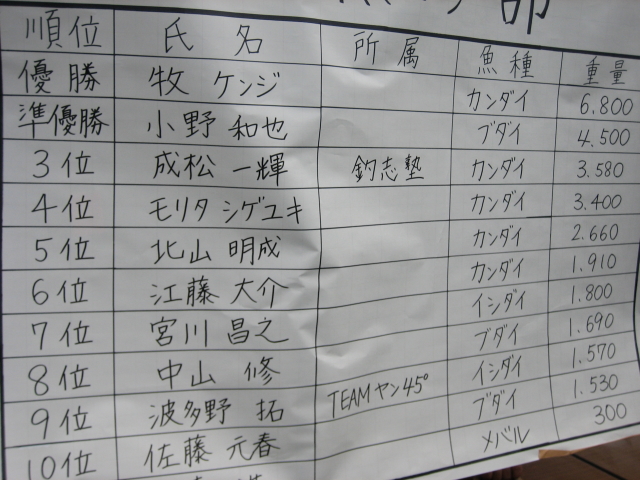 順位 氏名 所属 魚種 重量
優勝 牧 ケンジ カンダイ 6.800
準優勝 小野 和也 ブダイ 4.500
3位 成松 一輝 釣志塾 カンダイ 3.580
4位 モリタ シゲユキ カンダイ 3.400
5位 北山 明成 カンダイ 2.660
6位 江藤 大介 カンダイ 1.910
7位 宮川 昌之 イシダイ 1.800
8位 中山 修 ブダイ 1.690
9位 波多野 拓 TEAMヤン45° イシダイ 1.570
10位 佐藤 元春 ブダイ 1.530
メバル 300